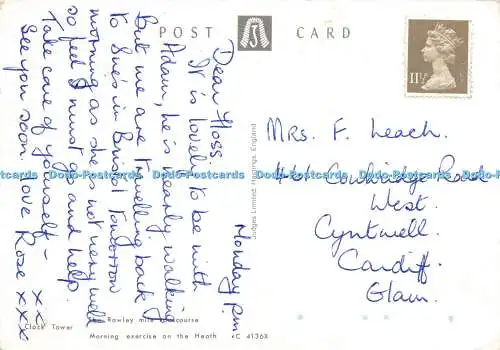 POST CARD
11½
Monday p.m
Dear Floss,
It is lovely to be with
Adam, he is nearly walking
But we are travelling back
to Sue's in Bristol tomorrow
morning as she is not very well
so feel I must go and help.
Take care of yourself - xx
See you soon. Love Rose xxx
Judges Limited, Hastings, England
Mrs. F. Leach.
461 Cowbridge Road
West.
Cyntwell.
Cardiff
Glam.
Clock Tower
Rowley mile racecourse
Morning exercise on the Heath C 4136X
Dodo-Postcards Dodo-Postcards Dodo-Postcards Dodo-Postcards